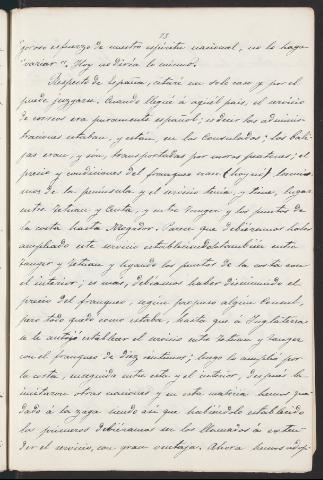 15
"goroso esfuerzo de nuestro espíritu nacional, no lo haga
"variar". Hoy no diría lo mismo.
Respecto de España, citaré un solo caso y por él
puede juzgarse. Cuando llegué á aquél pais, el servicio
de correos era puramente español; es decir las adminis-
traciones estaban, y están, en los Consulados; las bali-
jas eran, y son, transportadas por moros peatones; el
precio y condiciones del franqueo eran (hoy no) los mis-
mos de la península y el servicio tenía, y tiene, lugar
entre Tetuan y Ceuta, y entre Tanger y los puertos de
la costa hasta Mogador. Parece que debiéramos haber
ampliado este servicio estableciéndolo tambien entre
Tanger y Tetuan y ligando los puertos de la costa con
el interior; es mas, debíamos haber disminuido el
precio del franqueo, segun propuso algun Consul,
pero todo quedó como estaba, hasta que á Inglaterra
se le antojó establecer el servicio entre Tetuan y Tanger
con el franqueo de diez céntimos; luego lo amplió por
la costa, enseguida entre esta y el interior, después la
imitaron otras naciones y en esta materia hemos que-
dado á la zaga cuando asi que habiéndolo establecido
los primeros debiéramos ser los llamados á exten-
der el servicio, con gran ventaja. Ahora hemos adop-